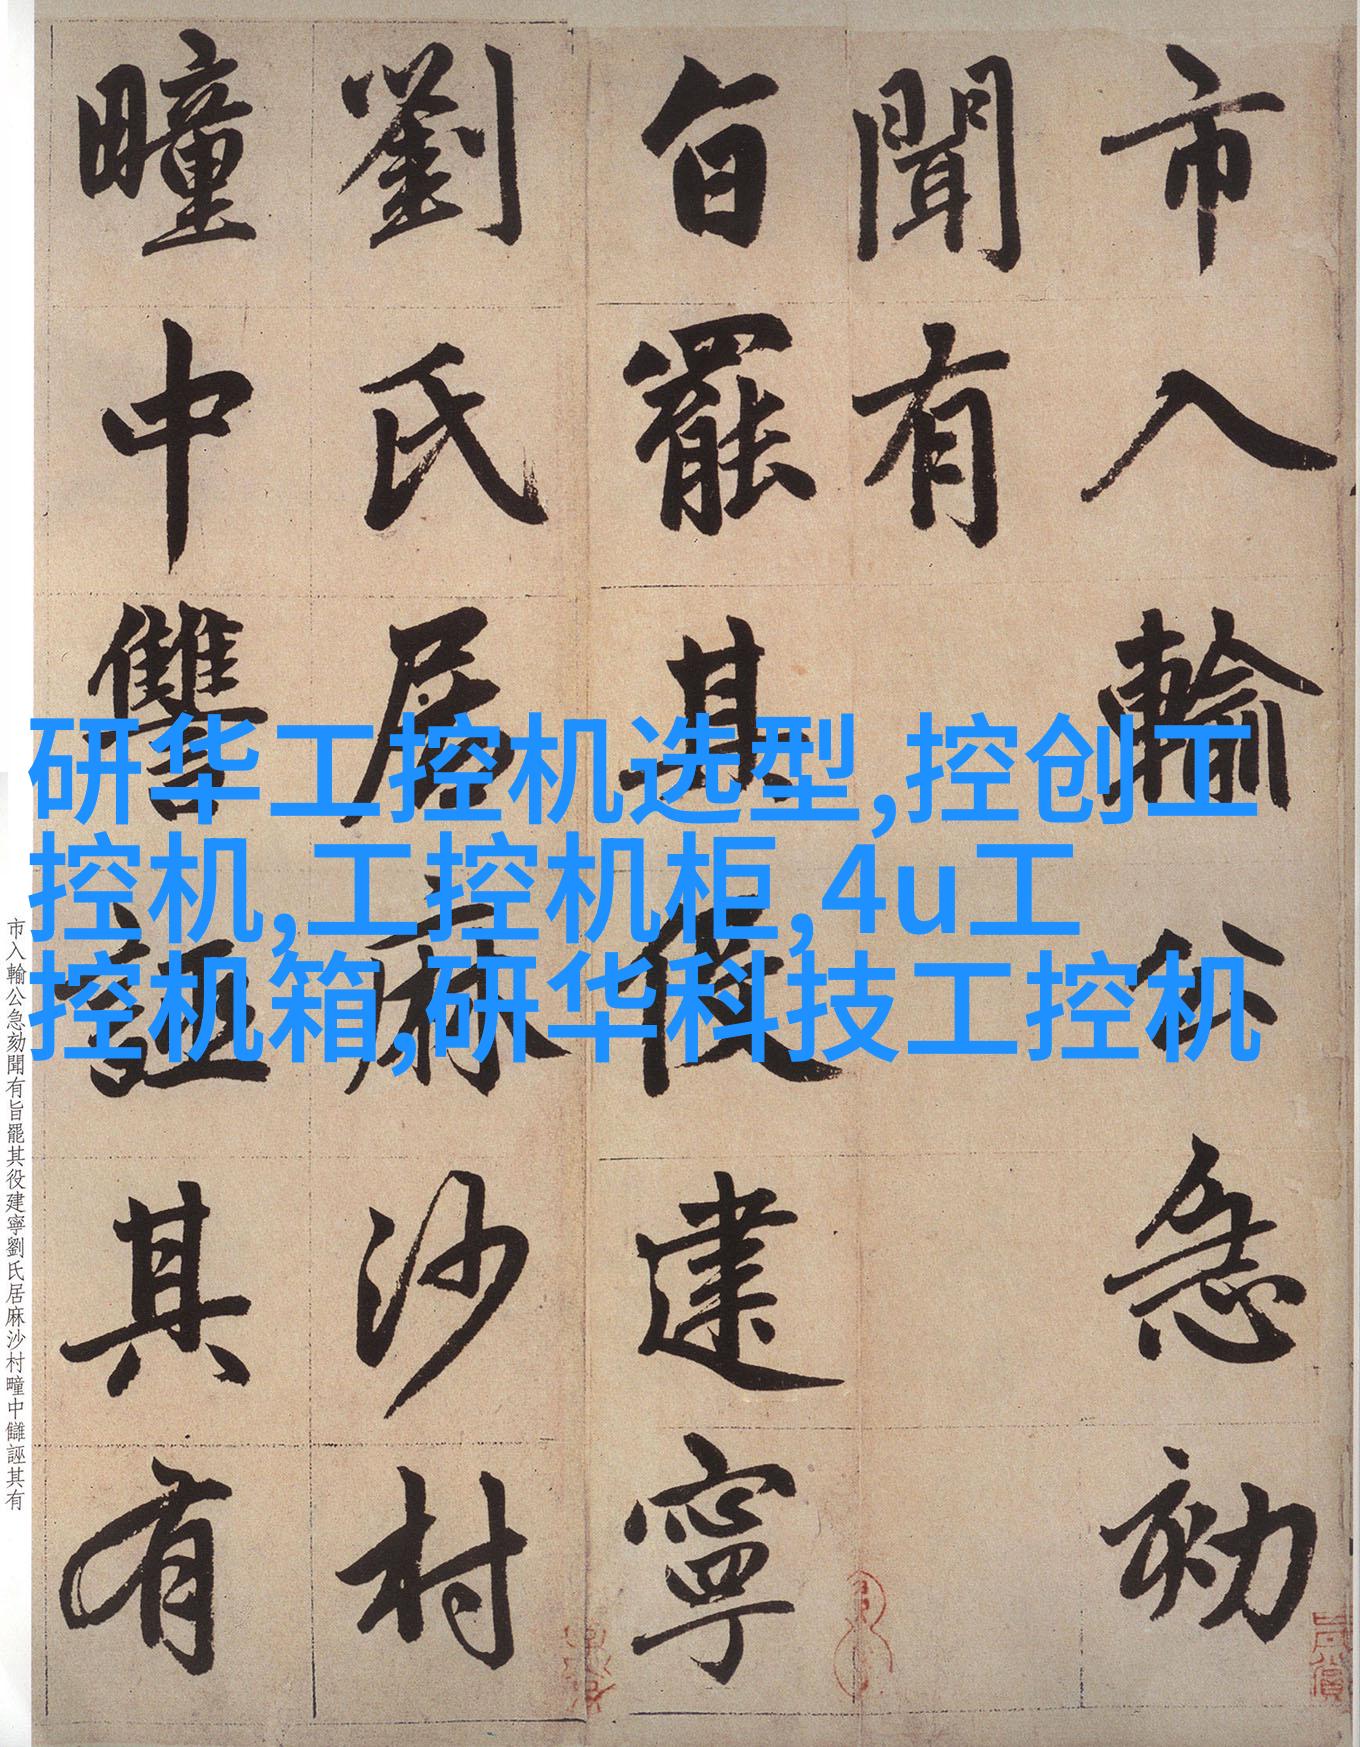 市入輸公急劾
聞有
旨罷其役建寧
劉氏居麻沙村
疃中讐誣其有
研华工控机选型,控创工
控机,工控机柜,4u工
控机箱,研华科技工控机
市入輸公急劾聞有旨罷其役建寧劉氏居麻沙村疃中讎誣其有